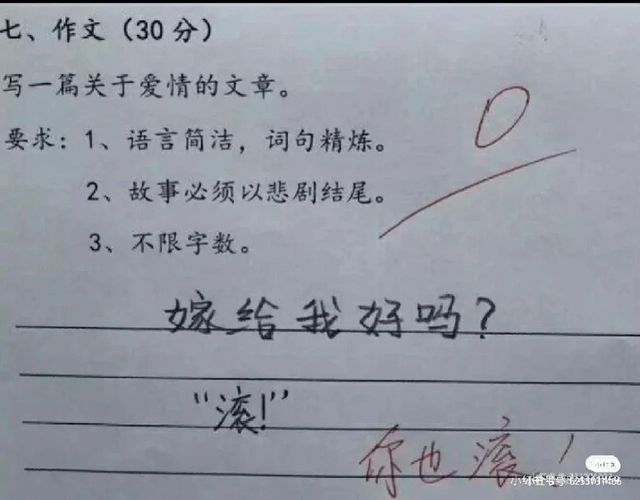 七、作文（30 分）
写一篇关于爱情的文章。
0
要求：1、语言简洁，词句精炼。
2、故事必须以悲剧结尾。
3、不限字数。
嫁给我好吗？
“滚!”
你也滚！